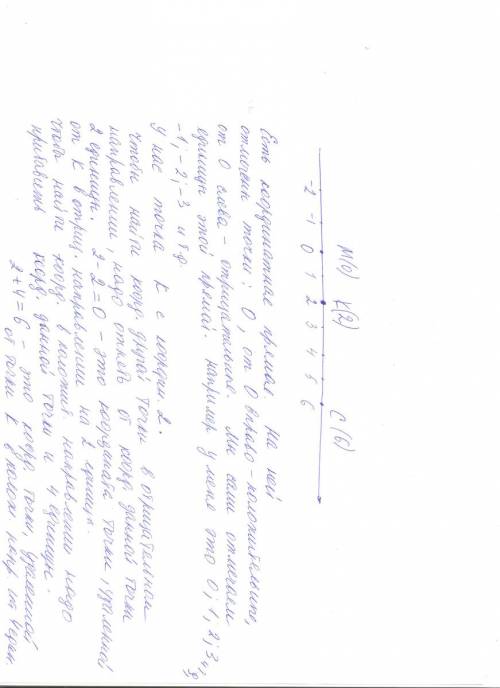 М(0) К(2) С(6)
-2 -1 0 1 2 3 4 5 6
Есть координатная прямая. На ней
отмечены точки: 0, от 0 вправо - положительные,
от 0 слева - отрицательные. Мы сами отмечаем
единицы этой прямой. например у меня это 0; 1, 2; 3 4,
-1; -2; -3 и т.д.
У нас точка К с коорден. 2.
Чтобы найти коор. другой точки в отрицательном
направлении, надо отнять от коорд. данной точки
2 единицы. 2-2=0 - это координата точки, удаленной
от К в отриц. направлении на 2 единицы.
Чтобы найти коорд. в положит. направлении надо
прибавить коорд. данной точки и 4 единицы.
2+4=6 - это коорд. точки, удаленной
от точки К в полож. напр. на 4 един.